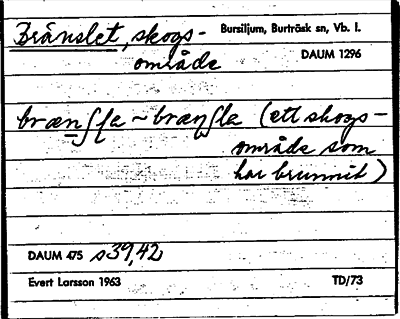 Bränslet, skogs- Bursiljum, Burträsk sn, Vb. l.
område DAUM 1296
brænʃʃa ~ brænʃla (ett skogs-
område som
har brunnit)
DAUM 475 s 39,42
Evert Larsson 1963 TD/73